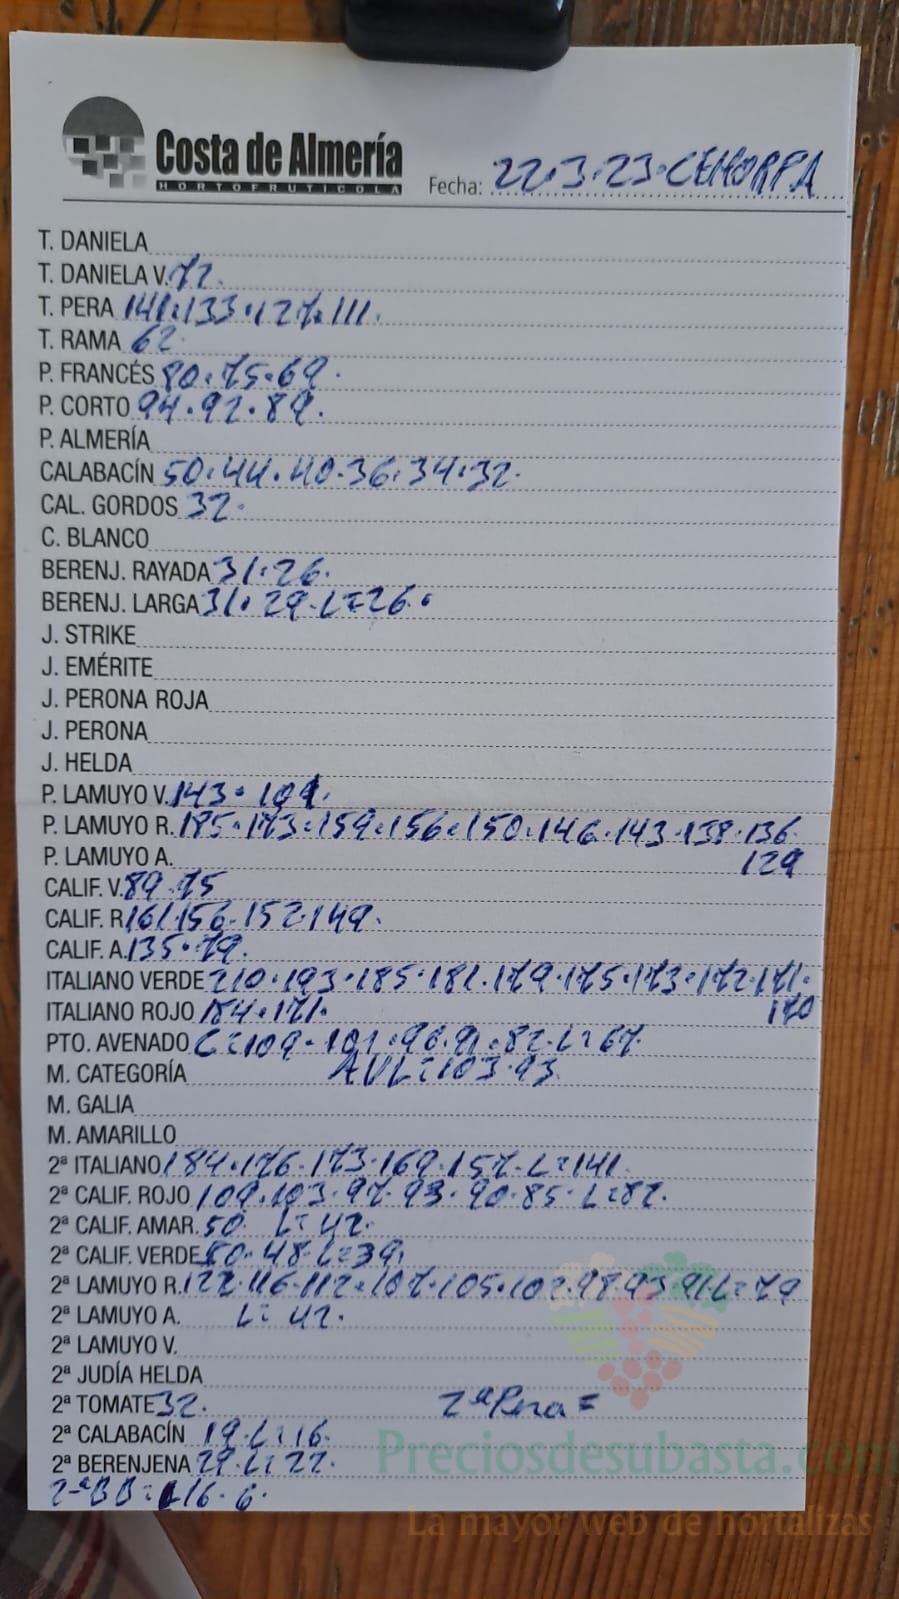 Costa de Almería
HORTOFRUTICOLA
Fecha: 22.3.23.CEHORPA
T. DANIELA
T. DANIELA V. 72.
T. PERA 141.133.127.111.
T. RAMA 62.
P. FRANCÉS 80.75.69.
P. CORTO 94.92.89.
P. ALMERÍA
CALABACÍN 50.44.40.36.34.32.
CAL. GORDOS 32.
C. BLANCO
BERENJ. RAYADA 31.26.
BERENJ. LARGA 31.29.L=26.
J. STRIKE
J. EMÉRITE
J. PERONA ROJA
J. PERONA
J. HELDA
P. LAMUYO V. 143.109.
P. LAMUYO R. 185.173.159.156.150.146.143.138.136.
P. LAMUYO A. 129
CALIF. V. 89.75
CALIF. R 161.156.152.149.
CALIF. A. 135.79.
ITALIANO VERDE 210.193.185.181.179.175.173.172.171.
ITALIANO ROJO 184.171. 170
PTO. AVENADO C=109.101.96.91.82.L=67.
M. CATEGORÍA AVL=103.93
M. GALIA
M. AMARILLO
2ª ITALIANO 184.176.173.169.157.L=141.
2ª CALIF. ROJO 109.103.97.93.90.85.L=82.
2ª CALIF. AMAR. 50. L=42.
2ª CALIF. VERDE 50.48.L=39.
2ª LAMUYO R. 122.116.112.107.105.102.97.93.91.L=79
2ª LAMUYO A. L=42.
2ª LAMUYO V.
2ª JUDÍA HELDA
2ª TOMATE 32. 2ªPera=
2ª CALABACÍN 19.L=16.
2ª BERENJENA 29.L=22.
2ªBB= 16.6.
Preciosdesubasta.com
La mayor web de hortalizas